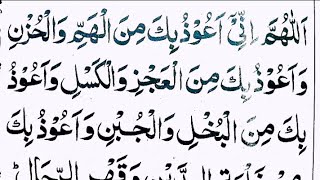 اَللّٰهُمَّ اِنِّیْۤ اَعُوْذُ بِكَ مِنَ الْهَمِّ وَالْحُزْنِ
وَاَعُوْذُ بِكَ مِنَ الْعَجْزِ وَالْكَسْلِ وَاَعُوْذُ
بِكَ مِنَ الْبُخْلِ وَالْجُبْنِ وَاَعُوْذُ بِكَ
وَقَهْرِ الرِّجَالِ